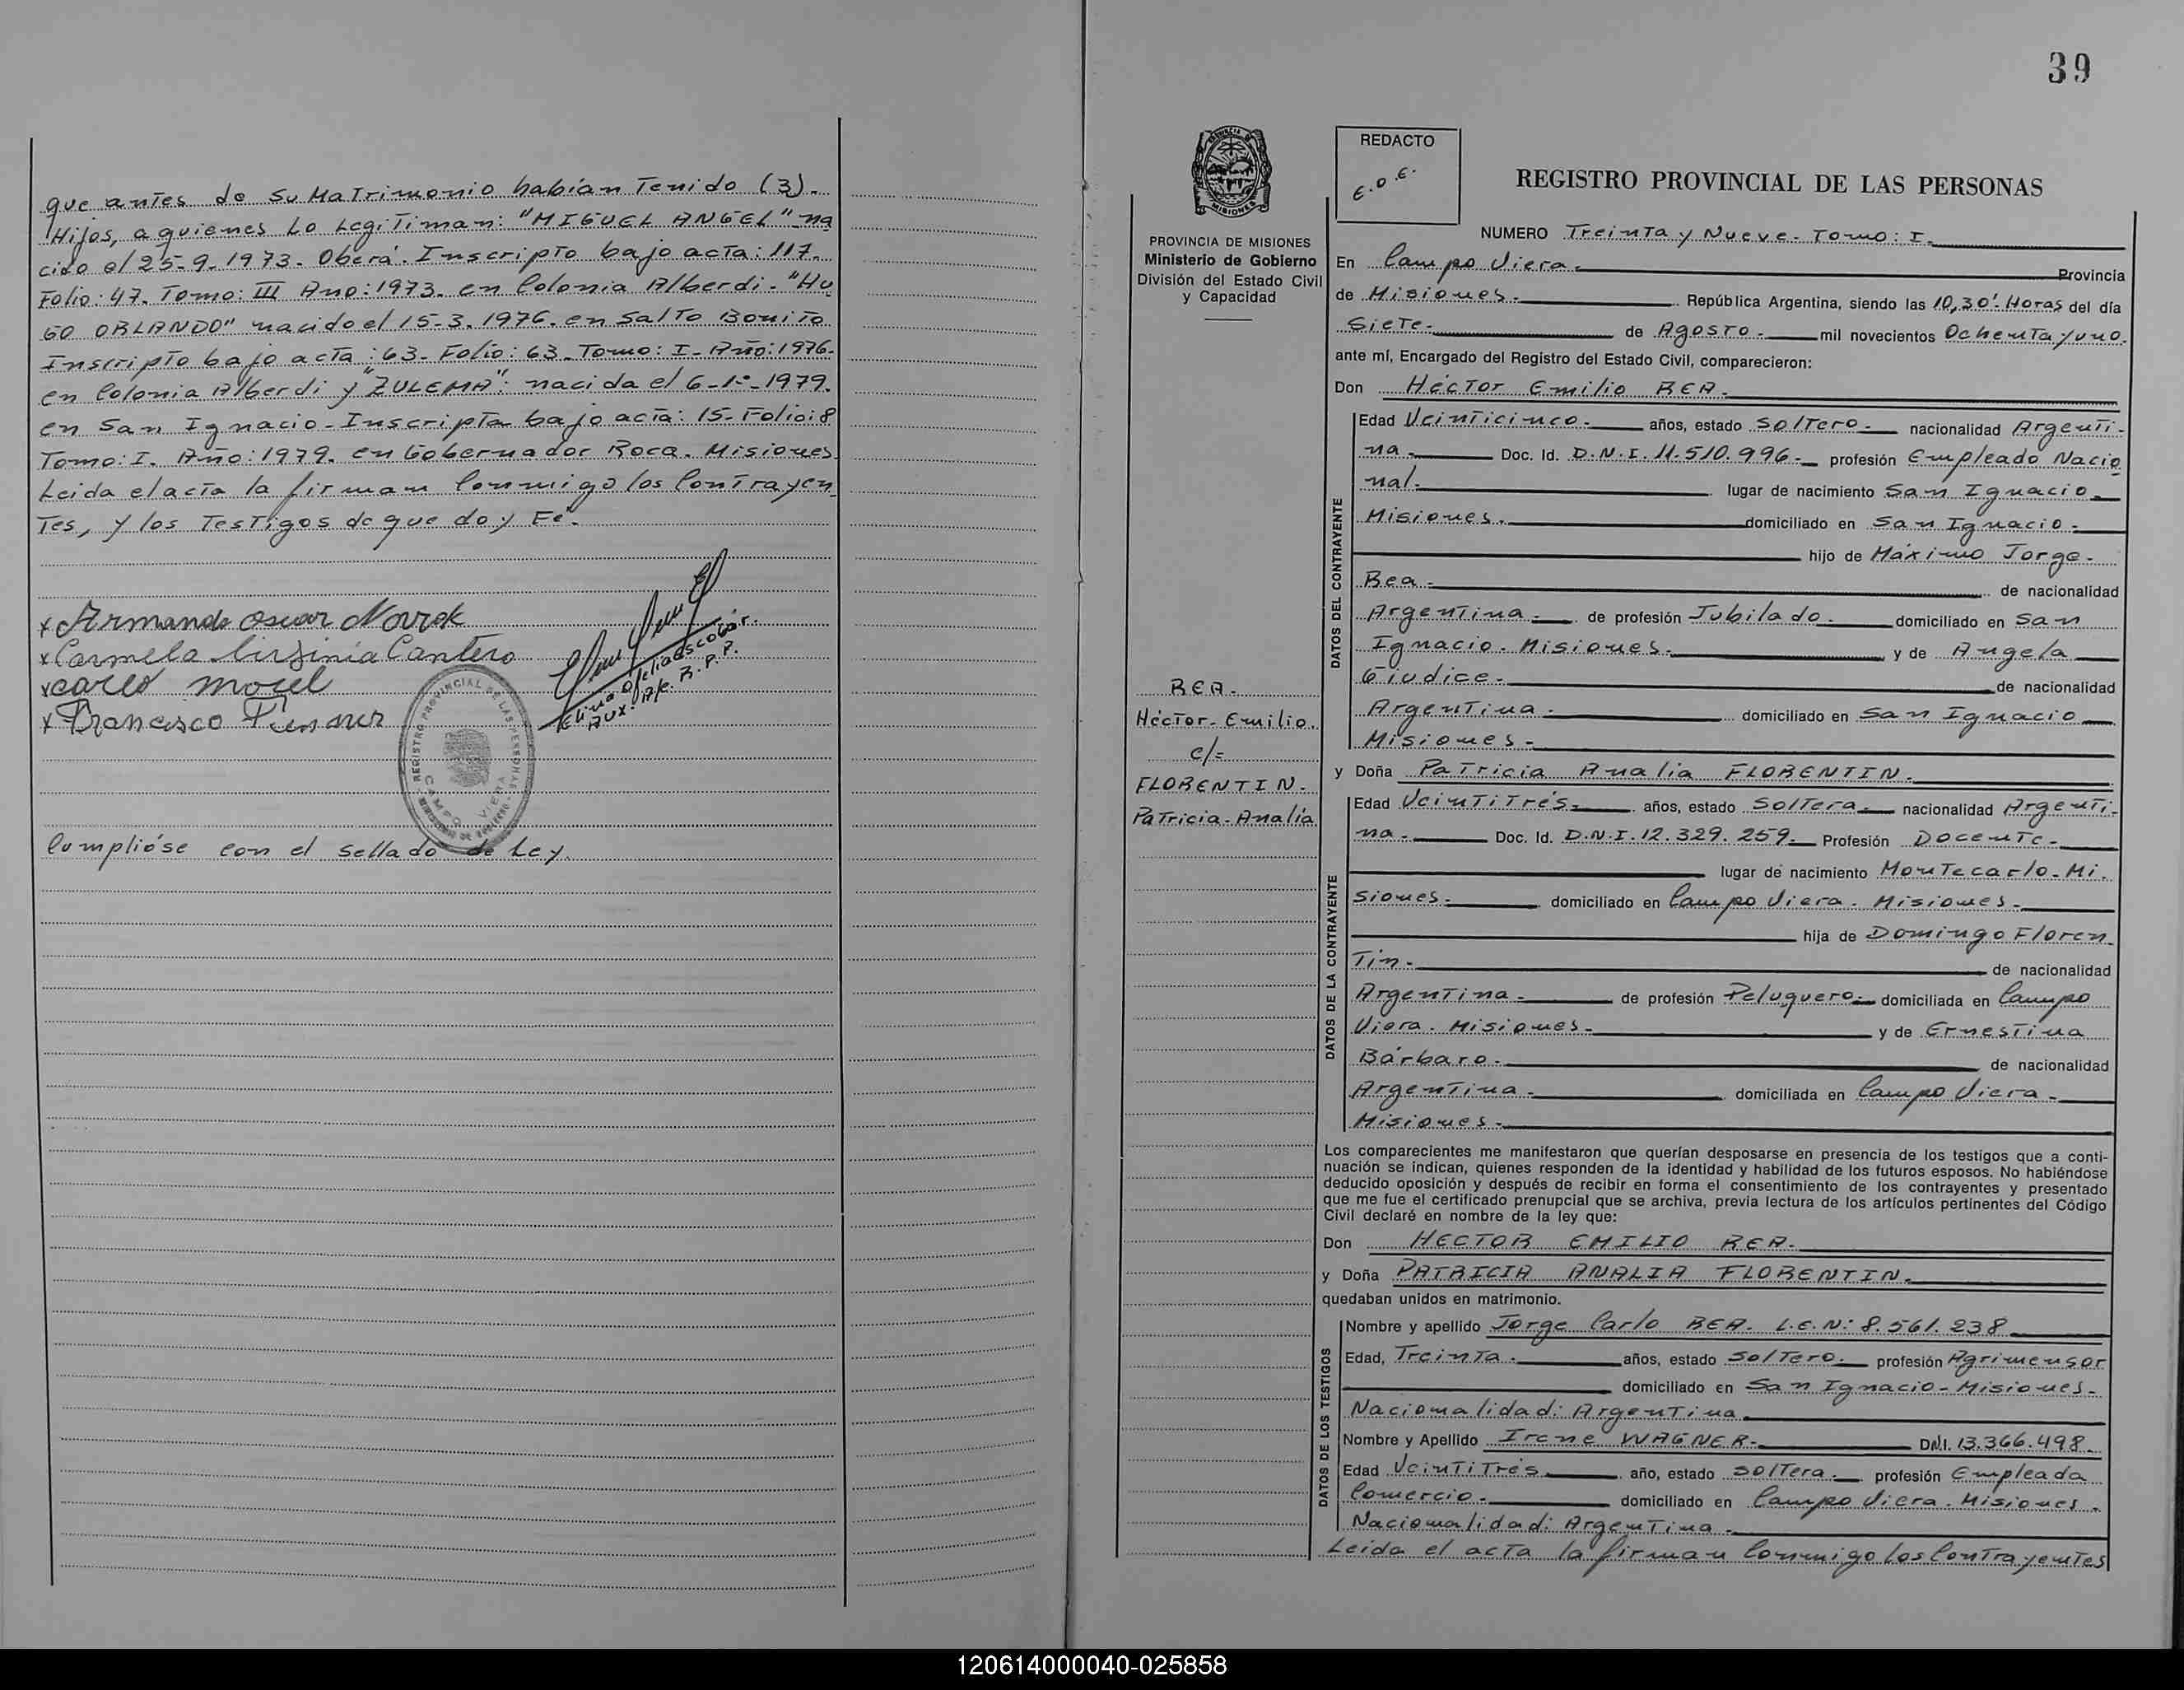 que antes de su Matrimonio habían Tenido (3).
Hijos, a quienes Lo Legitiman: "MIGUEL ANGEL" na
cido el 25-9-1973. Oberá. Inscripto bajo acta: 117.
Folio: 47. Tomo: III Año: 1973. en Colonia Alberdi. "HU
GO ORLANDO" nacido el 15-3-1976. en Salto Bonito
Inscripto bajo acta: 63. Folio: 63. Tomo: I. Año: 1976.
en Colonia Alberdi y "ZULEMA": nacida el 6-1°-1979.
en San Ignacio. Inscripta bajo acta: 15. Folio: 8
Tomo: I. Año: 1979. en Gobernador Roca. Misiones.
Leida el acta la firman Conmigo los Contrayen
Tes, y los Testigos de que doy Fé.
x Armando Oscar Novok
x Carmela Cirginia Cantero
x carlo morel
x Francisco
Elina Ofelia Escobar.
Aux. A/c. R.P.P.
REGISTRO PROVINCIAL DE LAS PERSONAS
CAMPO VIERA
Cumplióse con el sellado de Ley.
39
PROVINCIA DE MISIONES
Ministerio de Gobierno
División del Estado Civil
y Capacidad
REDACTO
E.O.E.
REGISTRO PROVINCIAL DE LAS PERSONAS
NUMERO Treinta y Nueve. Tomo: I.
En Campo Viera. Provincia
de Misiones. República Argentina, siendo las 10,30'. Horas del día
Siete. de Agosto. mil novecientos Ochenta y uno.
ante mí, Encargado del Registro del Estado Civil, comparecieron:
Don Héctor Emilio REA.
DATOS DEL CONTRAYENTE
Edad Veinticinco. años, estado Soltero. nacionalidad Argenti-
na. Doc. Id. D.N.I. 11.510.996. profesión Empleado Nacio
nal. lugar de nacimiento San Ignacio.
Misiones. domiciliado en San Ignacio.
hijo de Máximo Jorge.
Rea. de nacionalidad
Argentina. de profesión Jubilado. domiciliado en San
Ignacio. Misiones. y de Angela
Giudice. de nacionalidad
Argentina. domiciliado en San Ignacio
Misiones.
REA.
Héctor-Emilio.
c/=
FLORENTIN.
Patricia-Analía
y Doña Patricia Analia FLORENTIN.
DATOS DE LA CONTRAYENTE
Edad Veintitrés. años, estado Soltera. nacionalidad Argenti-
na. Doc. Id. D.N.I. 12.329.259. Profesión Docente.
lugar de nacimiento Montecarlo. Mi.
siones. domiciliado en Campo Viera. Misiones.
hija de Domingo Floren.
Tin. de nacionalidad
Argentina. de profesión Peluquero. domiciliada en Campo
Viera. Misiones. y de Ernestina
Bárbaro. de nacionalidad
Argentina. domiciliada en Campo Viera.
Misiones.
Los comparecientes me manifestaron que querían desposarse en presencia de los testigos que a conti-
nuación se indican, quienes responden de la identidad y habilidad de los futuros esposos. No habiéndose
deducido oposición y después de recibir en forma el consentimiento de los contrayentes y presentado
que me fue el certificado prenupcial que se archiva, previa lectura de los artículos pertinentes del Código
Civil declaré en nombre de la ley que:
Don HECTOR EMILIO REA.
y Doña PATRICIA ANALIA FLORENTIN.
quedaban unidos en matrimonio.
DATOS DE LOS TESTIGOS
Nombre y apellido Jorge Carlo REA. L.E.N: 8.561.238
Edad, Treinta. años, estado Soltero. profesión Agrimensor
domiciliado en San Ignacio - Misiones.
Nacionalidad: Argentina.
Nombre y Apellido Irene WAGNER. DNI. 13.366.498.
Edad Veintitrés. año, estado Soltera. profesión Empleada
Comercio. domiciliado en Campo Viera. Misiones.
Nacionalidad: Argentina.
Leida el acta la firman Conmigo los Contrayentes
120614000040-025858